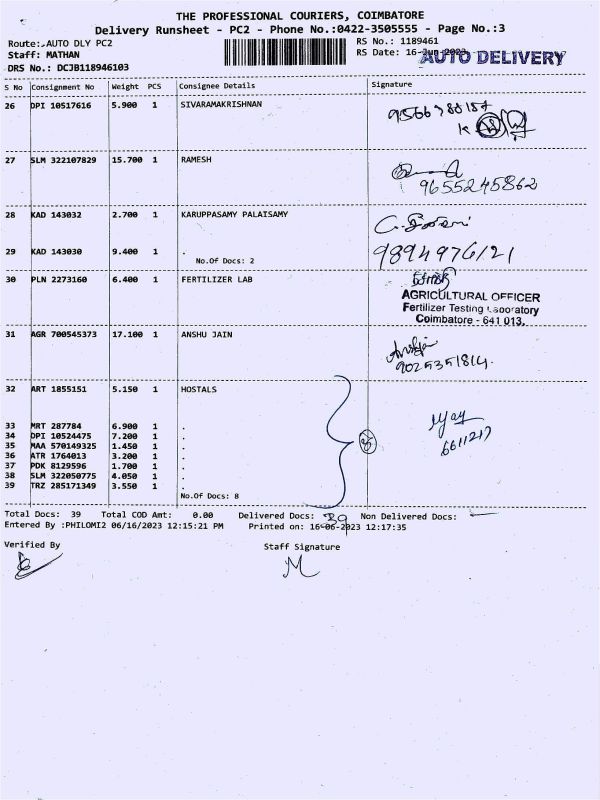 THE PROFESSIONAL COURIERS, COIMBATORE
Delivery Runsheet - PC2 - Phone No.:0422-3505555 - Page No.:3
Route:.AUTO DLY PC2
RS No.: 1189461
Staff: MATHAN
RS Date: 16-Jun-2023
AUTO DELIVERY
DRS No.: DCJB118946103
S No Consignment No Weight PCS Consignee Details Signature
26 DPI 10517616 5.900 1 SIVARAMAKRISHNAN
27 SLM 322107829 15.700 1 RAMESH
9655245862
28 KAD 143032 2.700 1 KARUPPASAMY PALAISAMY
29 KAD 143030 9.400 1 .
9894976121
No.Of Docs: 2
30 PLN 2273160 6.400 1 FERTILIZER LAB
AGRICULTURAL OFFICER
Fertilizer Testing Laboratory
Coimbatore - 641 013.
31 AGR 700545373 17.100 1 ANSHU JAIN
9025351814.
32 ART 1855151 5.150 1 HOSTALS
33 MRT 287784 6.900 1 .
34 DPI 10524475 7.200 1 .
35 MAA 570149325 1.450 1 .
36 ATR 1764013 3.200 1 .
37 PDK 8129596 1.700 1 .
38 SLM 322050775 4.050 1 .
39 TRZ 285171349 3.550 1 .
No.Of Docs: 8
Total Docs: 39 Total COD Amt: 0.00 Delivered Docs: 39 Non Delivered Docs:
Entered By :PHILOMI2 06/16/2023 12:15:21 PM Printed on: 16-06-2023 12:17:35
Verified By Staff Signature
M